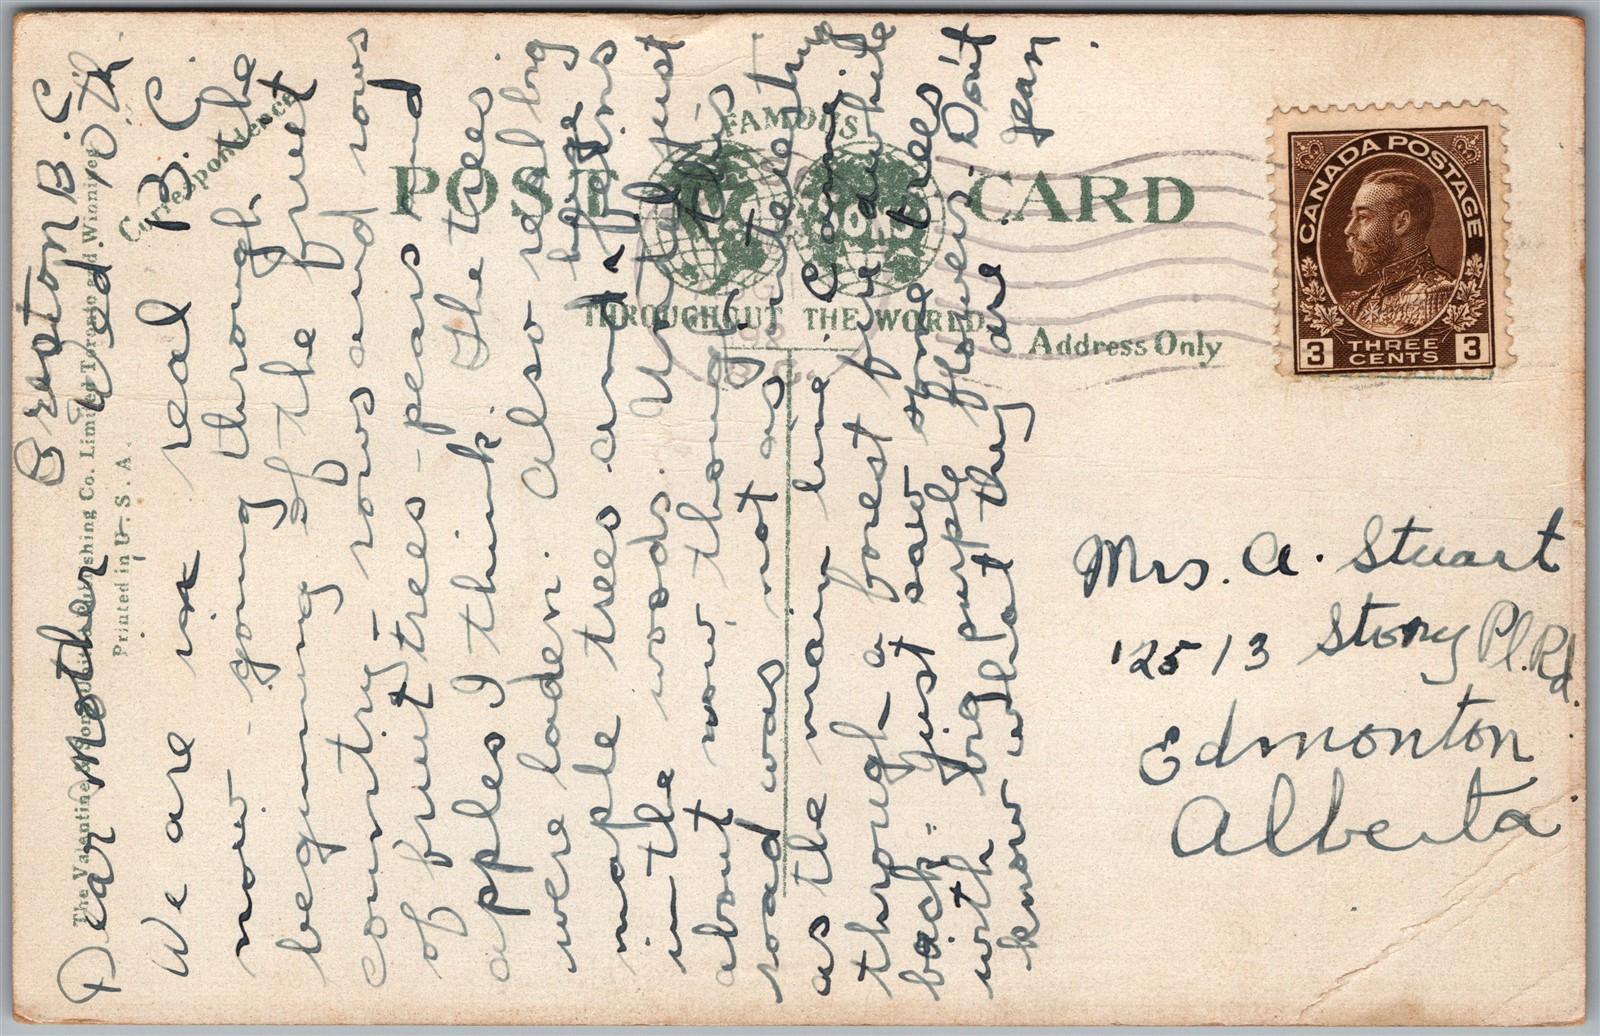 Creston B.C.
Wed 10th.
Dear Mother
We are in real B.C.
now - going through the
beginning of the fruit
country - rows and rows
of fruit trees - pears and
apples I think. The trees
were laden. Also real big
maple trees and huge ferns
in the woods. We just
about now though this
road was not as interesting
as the main line. Coming
through a forest fire awhile
back - just saw some trees
with big purple flowers. Don't
know what they are. Jean
Correspondence
The Valentine & Sons Publishing Co. Limited Toronto and Winnipeg
Printed in U. S. A.
POST CARD
FAMOUS
THROUGHOUT THE WORLD
Address Only
CANADA POSTAGE
3 THREE CENTS 3
Mrs. A. Stuart
12513 Stony Pl. Rd.
Edmonton
Alberta